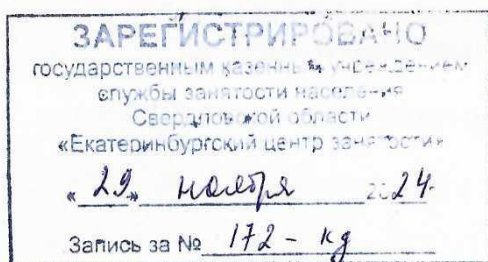 ЗАРЕГИСТРИРОВАНО
государственным казенным учреждением
службы занятости населения
Свердловской области
«Екатеринбургский центр занятости»
«29» ноября 2024
Запись за № 172 - кд